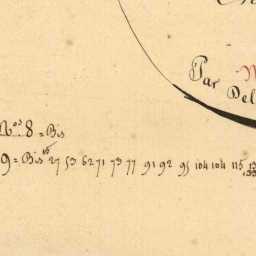 Par
Del
N.os 8 = Bis
9 = Bis 27 53 62 71 73 77 91 92 95 104 104 115